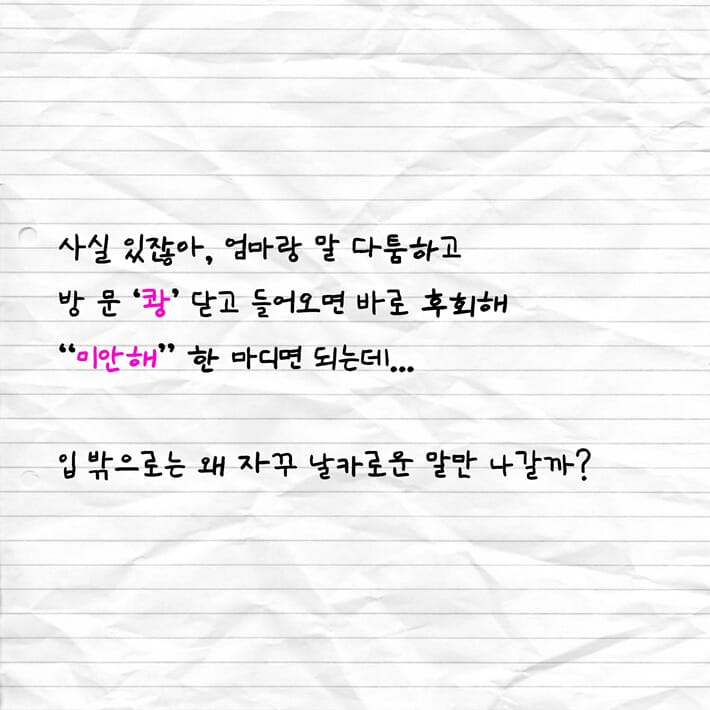 사실 있잖아, 엄마랑 말 다툼하고
방 문 ‘쾅’ 닫고 들어오면 바로 후회해
“미안해” 한 마디면 되는데...
입 밖으로는 왜 자꾸 날카로운 말만 나갈까?